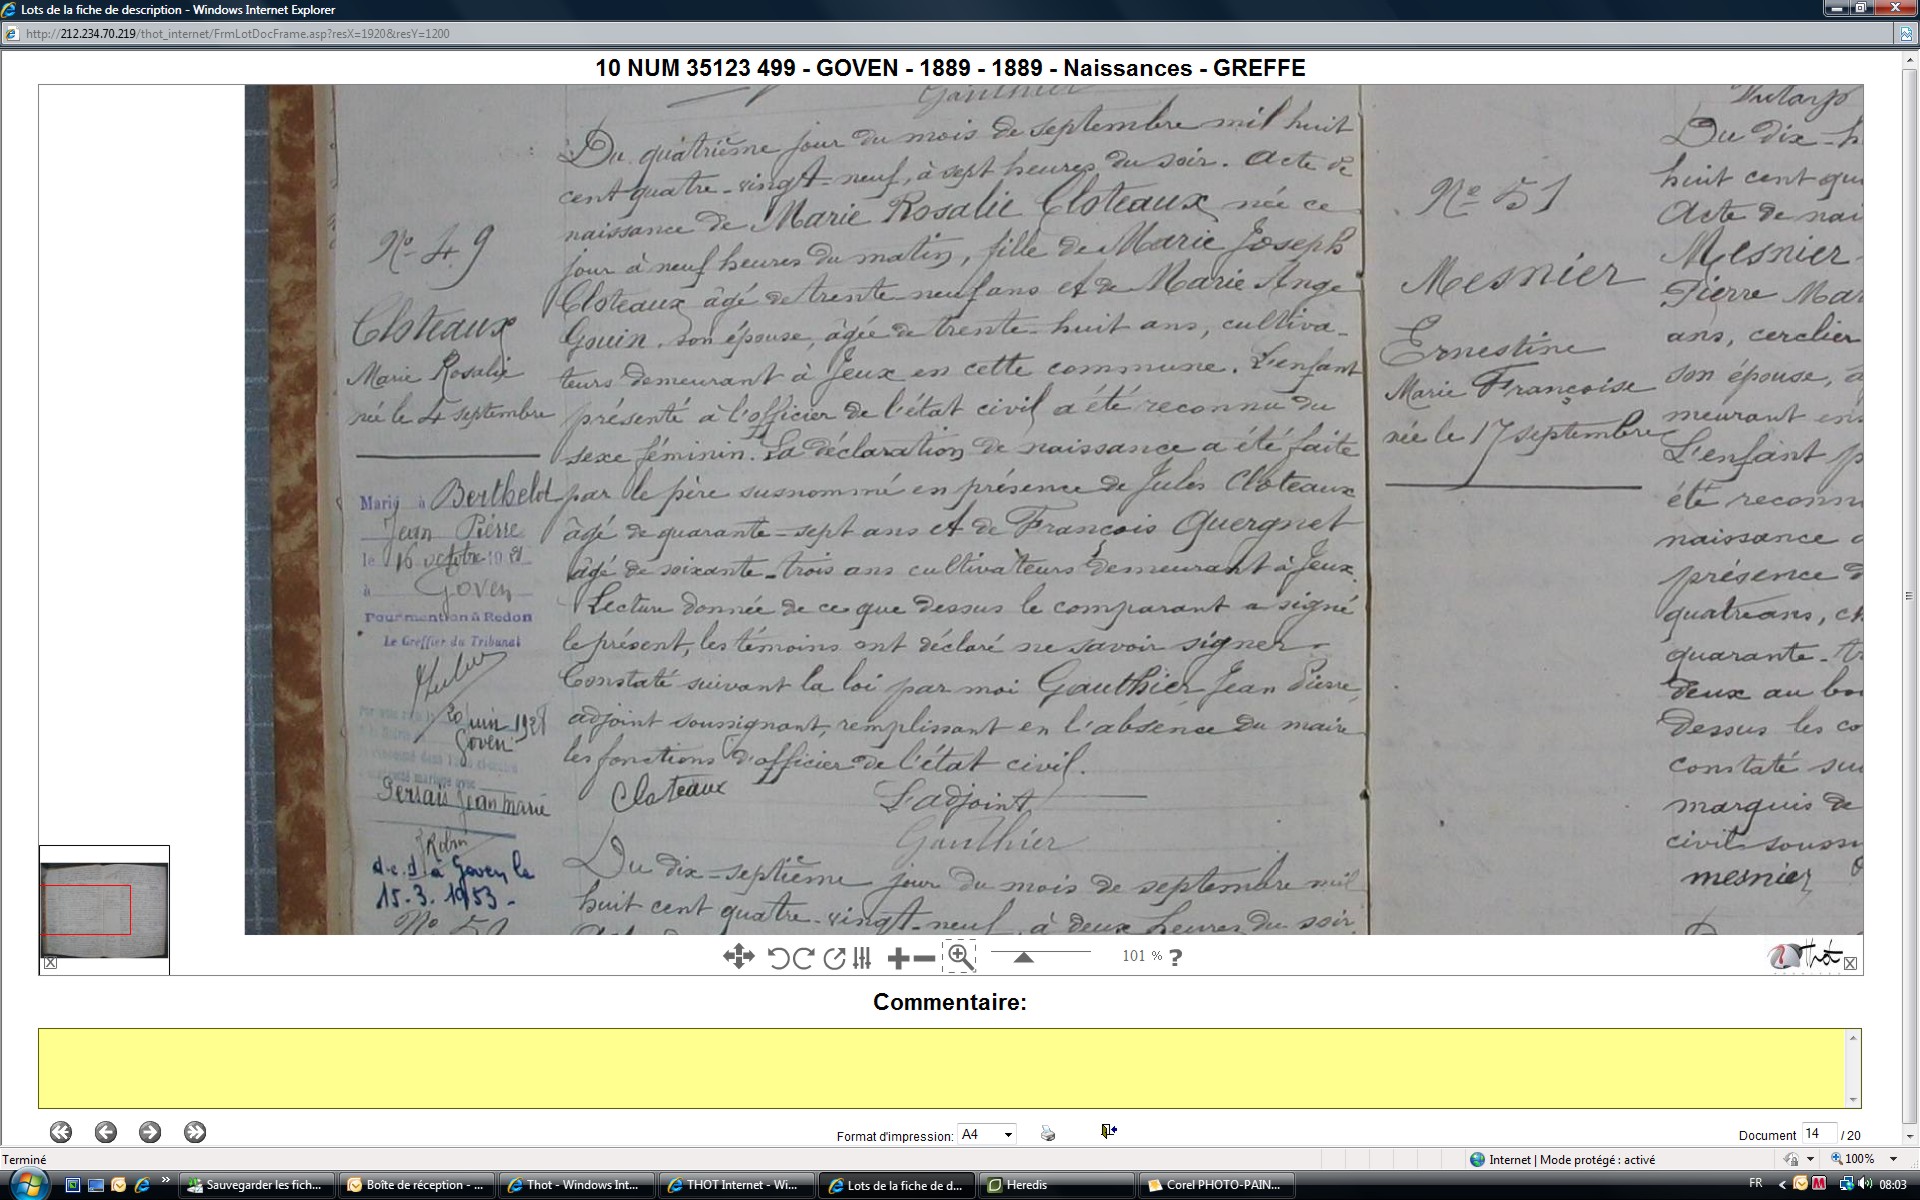 Lots de la fiche de description - Windows Internet Explorer
http://212.234.70.219/thot_internet/FrmLotDocFrame.asp?resX=1920&resY=1200
10 NUM 35123 499 - GOVEN - 1889 - 1889 - Naissances - GREFFE
Gauthier
N° 49
Cloteaux
Marie Rosalie
née le 4 septembre
Marié à Berthelot
Jean Pierre
le 16 octobre 19
à Goven
Pour mention à Redon
Le Greffier du Tribunal
20 juin 1928
Goven
Persais Jean Marie
Robin
d.c.d à Goven le
15.3.1953-
Du quatrième jour du mois de septembre mil huit
cent quatre-vingt-neuf, à sept heures du soir. Acte de
naissance de Marie Rosalie Cloteaux née ce
jour à neuf heures du matin, fille de Marie Joseph
Cloteaux âgé de trente-neuf ans et de Marie Ange
Gouin son épouse, âgée de trente-huit ans, cultiva-
teurs demeurant à Jeux en cette commune. L'enfant
présenté à l'officier de l'état civil a été reconnu du
sexe féminin. La déclaration de naissance a été faite
par le père susnommé en présence de Jules Cloteaux
âgé de quarante-sept ans et de François Quergnet
âgé de soixante-trois ans cultivateurs demeurant à Jeux.
Lecture donnée de ce que dessus le comparant a signé
le présent, les témoins ont déclaré ne savoir signer.
Constaté suivant la loi par moi Gauthier Jean Pierre,
adjoint soussignant, remplissant en l'absence du maire
les fonctions d'officier de l'état civil.
Cloteaux L'adjoint
Gauthier
Du dix-septième jour du mois de septembre mil
huit cent quatre-vingt-neuf, à deux heures du soir.
N° 51
Mesnier
Ernestine
Marie Françoise
née le 17 septembre
Du dix-h
huit cent qu
Acte de nai
Mesnier
Pierre Mar
ans, cerclier
son épouse, a
meurant en
L'enfant p
été reconn
naissance
présence d
quatre ans, c
quarante-tr
deux au bo
dessus les co
constaté su
marquis de
civil souss
mesnier
101 % ?
Thot
Commentaire:
Format d'impression: A4
Document 14 / 20
Terminé
Internet | Mode protégé : activé
100%
Sauvegarder les fich...
Boîte de réception - ...
Thot - Windows Int...
THOT Internet - Wi...
Lots de la fiche de d...
Heredis
Corel PHOTO-PAIN...
FR
08:03